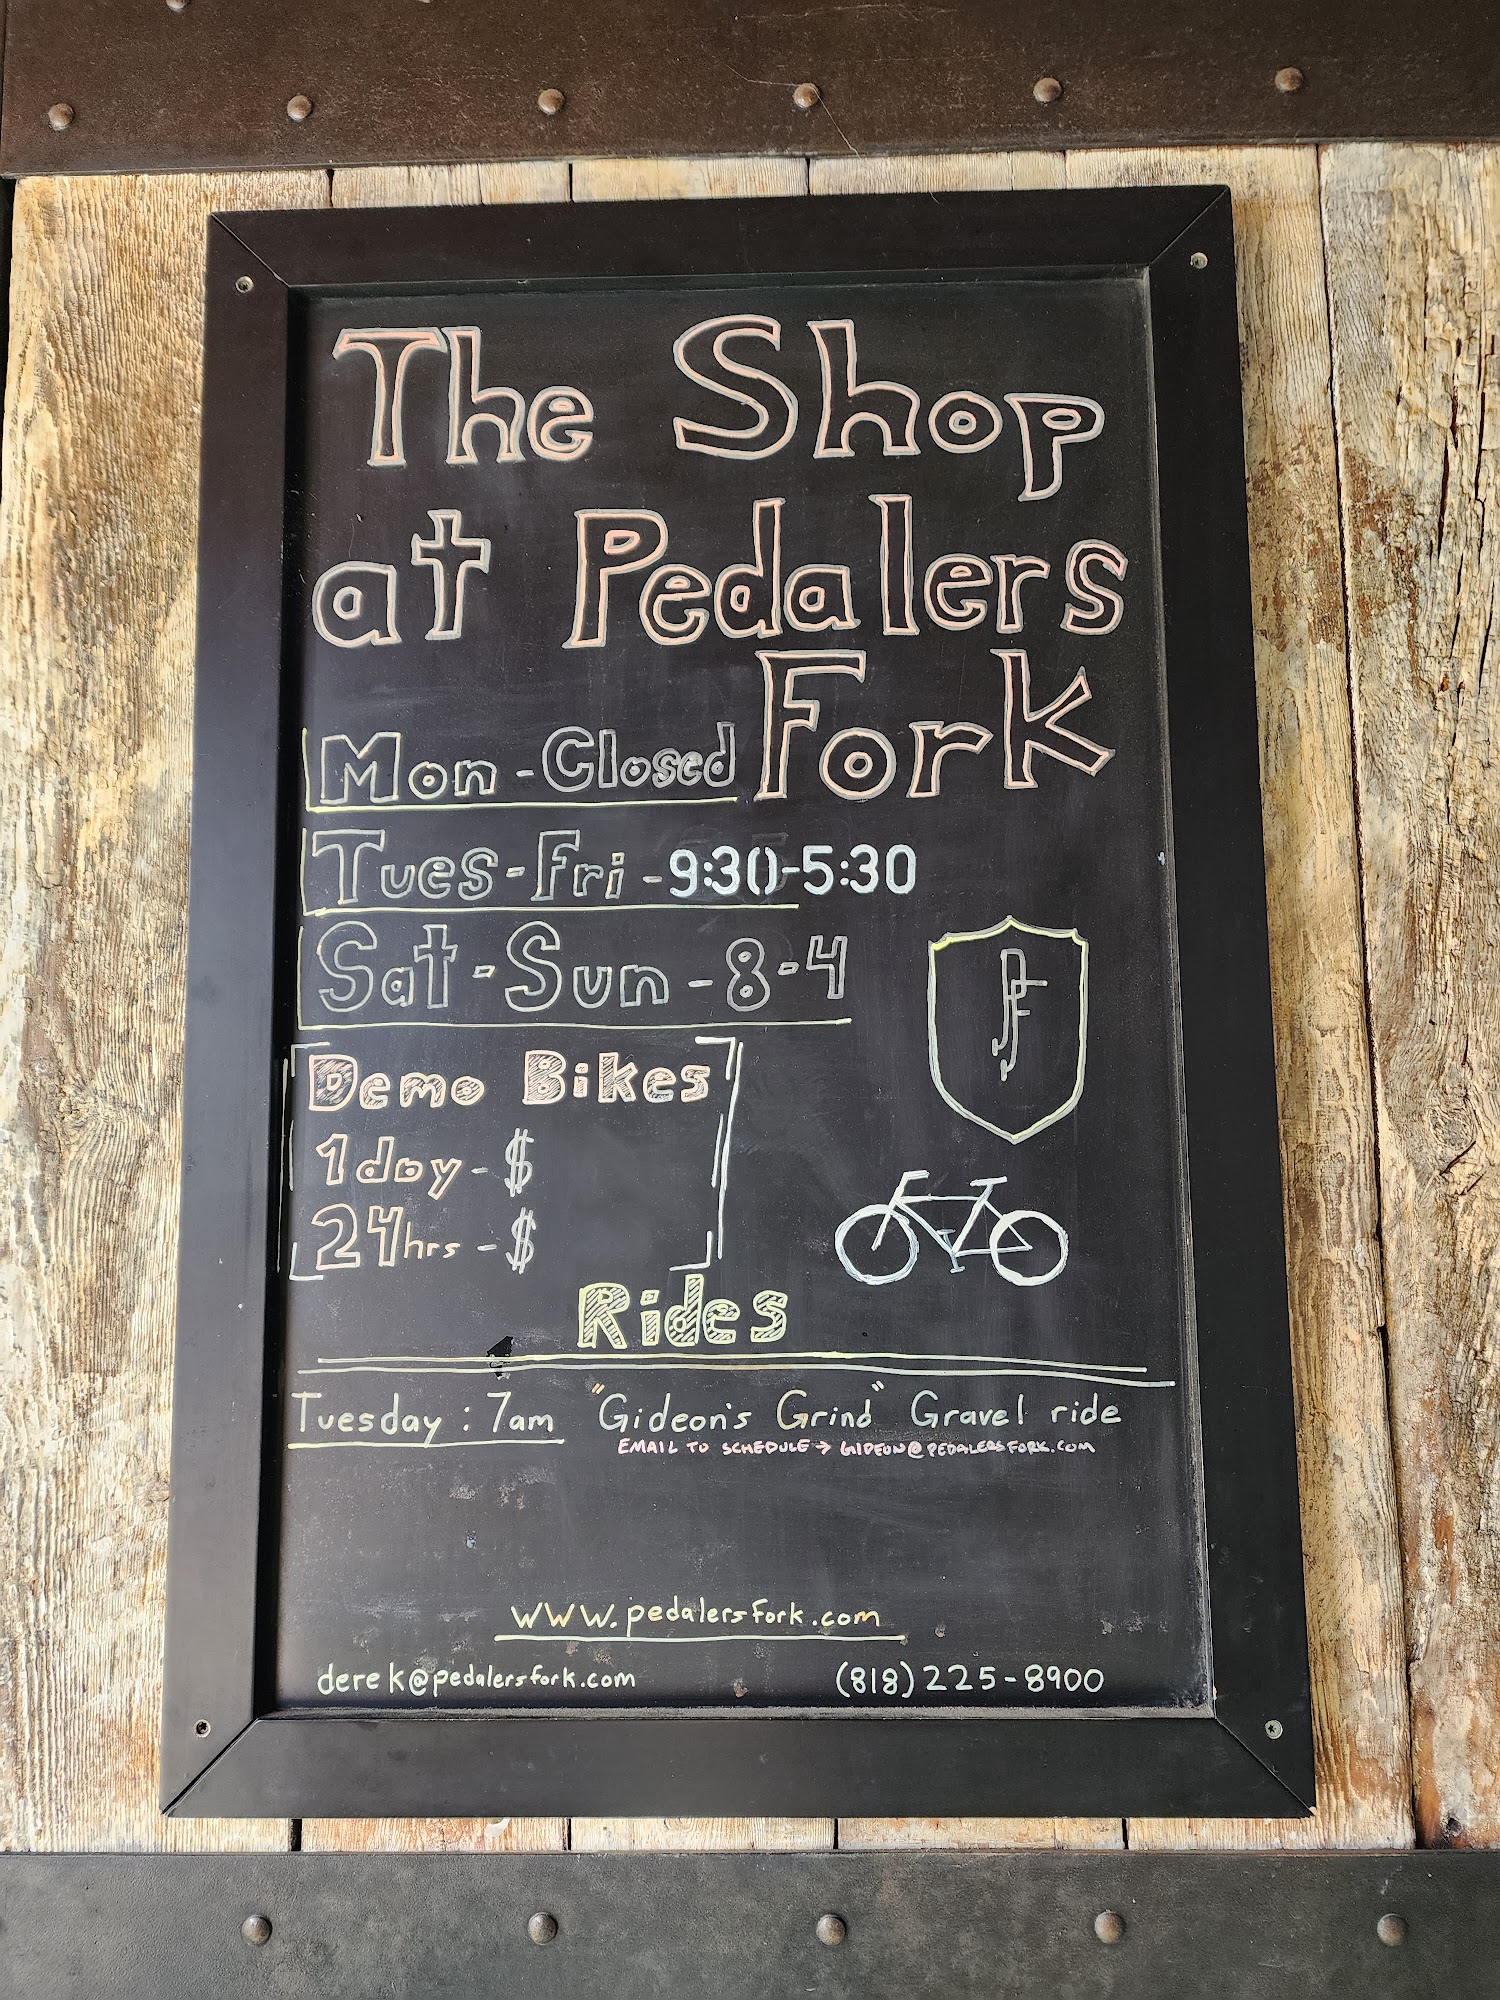 The Shop
at Pedalers
Fork
Mon - Closed
Tues - Fri - 9:30-5:30
Sat - Sun - 8 - 4
PF
Demo Bikes
1 day - $
24hrs - $
Rides
Tuesday : 7am "Gideon's Grind" Gravel ride
EMAIL TO SCHEDULE → GIDEON@PEDALERSFORK.COM
www.pedalersfork.com
derek@pedalersfork.com (818) 225-8900